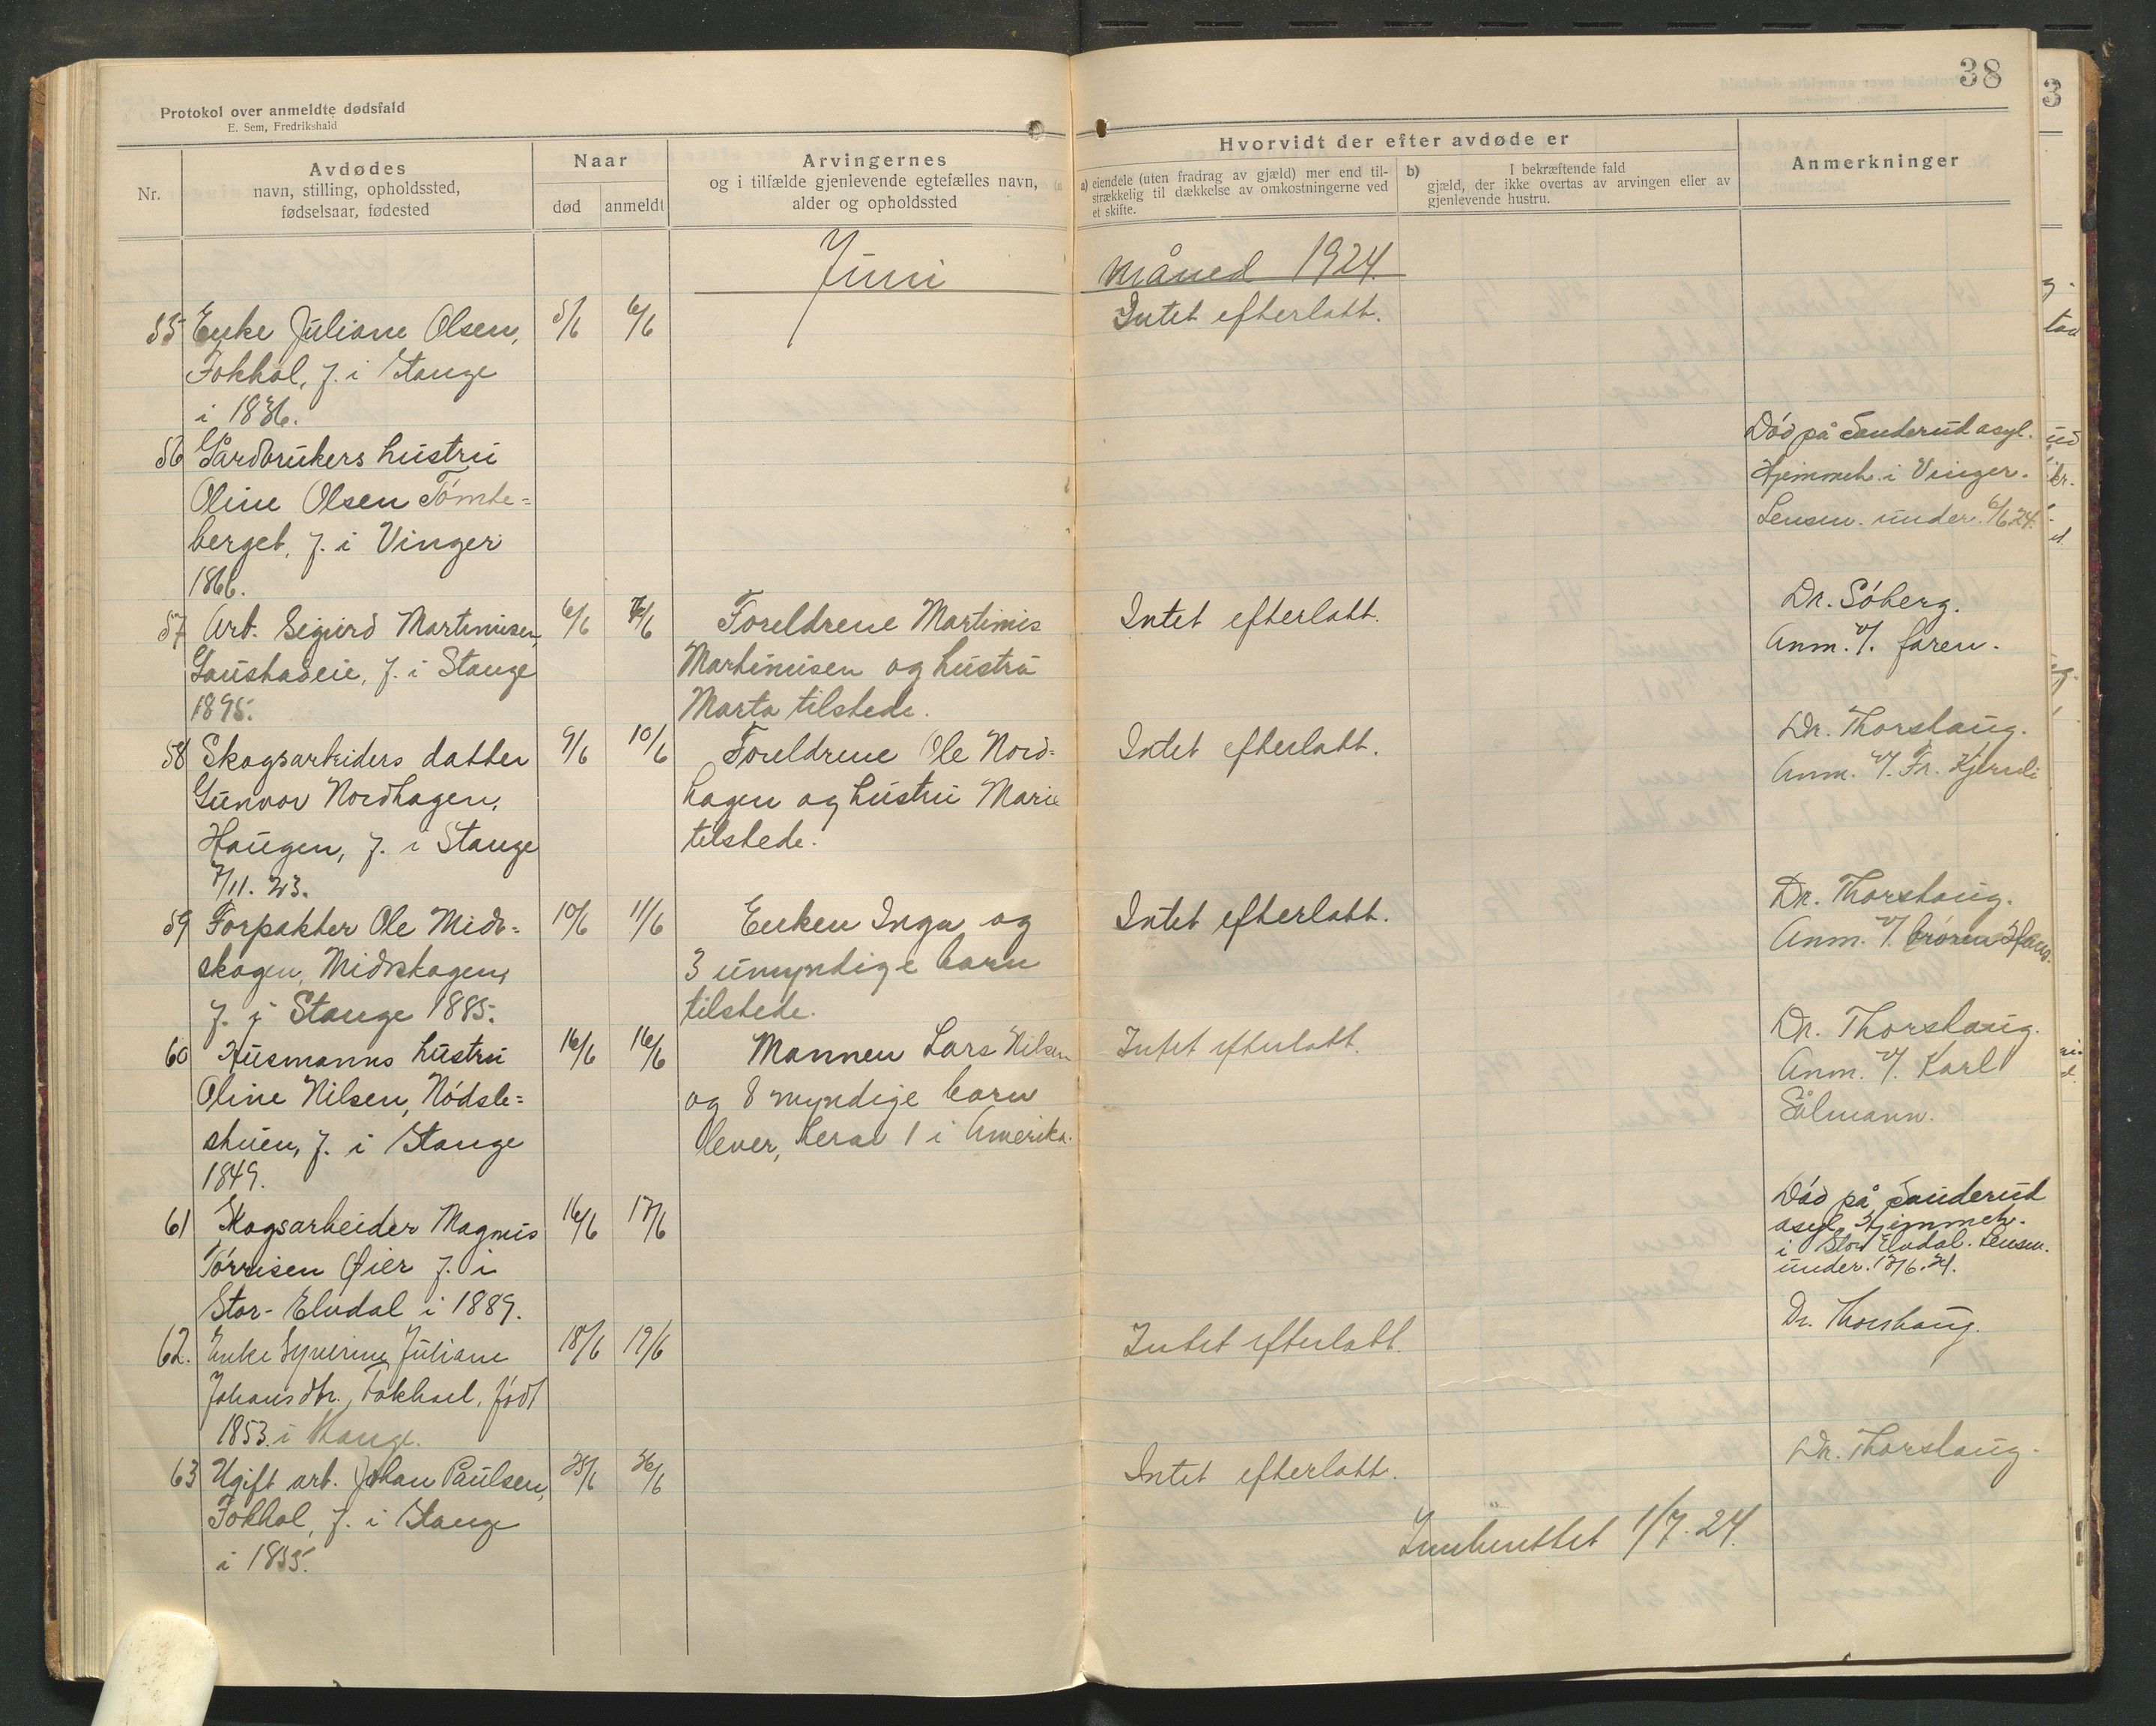 38
3
Protokol over anmeldte dødsfald
E. Sem, Fredrikshald
Nr.
Avdødes
navn, stilling, opholdssted,
fødselsaar, fødested
Naar
død
anmeldt
Arvingernes
og i tilfælde gjenlevende egtefælles navn,
alder og opholdssted
Hvorvidt der efter avdøde er
a) eiendele (uten fradrag av gjæld) mer end til-
strækkelig til dækkelse av omkostningerne ved
et skifte.
b) I bekræftende fald
gjæld, der ikke overtas av arvingen eller av
gjenlevende hustru.
Anmerkninger
Juni måned 1924.
55 Enke Juliane Olsen, 5/6 6/6 Intet efterlatt.
Fokhol, f. i Stange
i 1836.
56 Gårdbrukers hustru
Oline Olsen Tömte=
berget, f. i Vinger
1866.
Död på Sanderud asyl.
Hjemmeh. i Vinger.
Lensm. under. 6/6.24.
57 Arb. Sigurd Martinusen, 6/6 7/6 Foreldrene Martinus Intet efterlatt. Dr. Söberg.
Gaustadeie, f. i Stange Martinusen og hustru Anm. v/. faren.
1895. Marta tilstede.
58 Skogsarbeiders datter 9/6 10/6 Foreldrene Ole Nord= Intet efterlatt. Dr. Thorshaug.
Gunvor Nordhagen, hagen og hustru Marie Anm. v/. Fr.
Haugen, f. i Stange tilstede.
7/11. 23.
59 Forpakter Ole Mid= 10/6 11/6 Enken Inga og Intet efterlatt. Dr. Thorshaug.
skogen, Midskogen, 3 umyndige barn Anm. v/. broren
f. i Stange 1885. tilstede.
60 Husmanns hustru 16/6 16/6 Mannen Lars Nilsen Intet efterlatt. Dr. Thorshaug.
Oline Nilsen, Nödsle= og 8 myndige barn Anm. v/. Karl
stuen, f. i Stange lever, herav 1 i Amerika. Sålmann.
1849.
61 Skogsarbeider Magnus 16/6 17/6
Törrisen Øier f. i
Stor-Elvdal i 1889.
Död på Sanderud
asyl, Hjemmeh.
i Stor Elvdal. Lensm.
under. 17/6.24.
62. Enke Syverine Juliane 18/6 19/6 Intet efterlatt. Dr. Thorshaug.
Johansdtr., Fokhoel, född
1853 i Stange.
63 Ugift arb. Johan Paulsen, 25/6 26/6 Intet efterlatt. Dr. Thorshaug.
Fokhol, f. i Stange
i 1855.
Innberettet 1/7. 24.